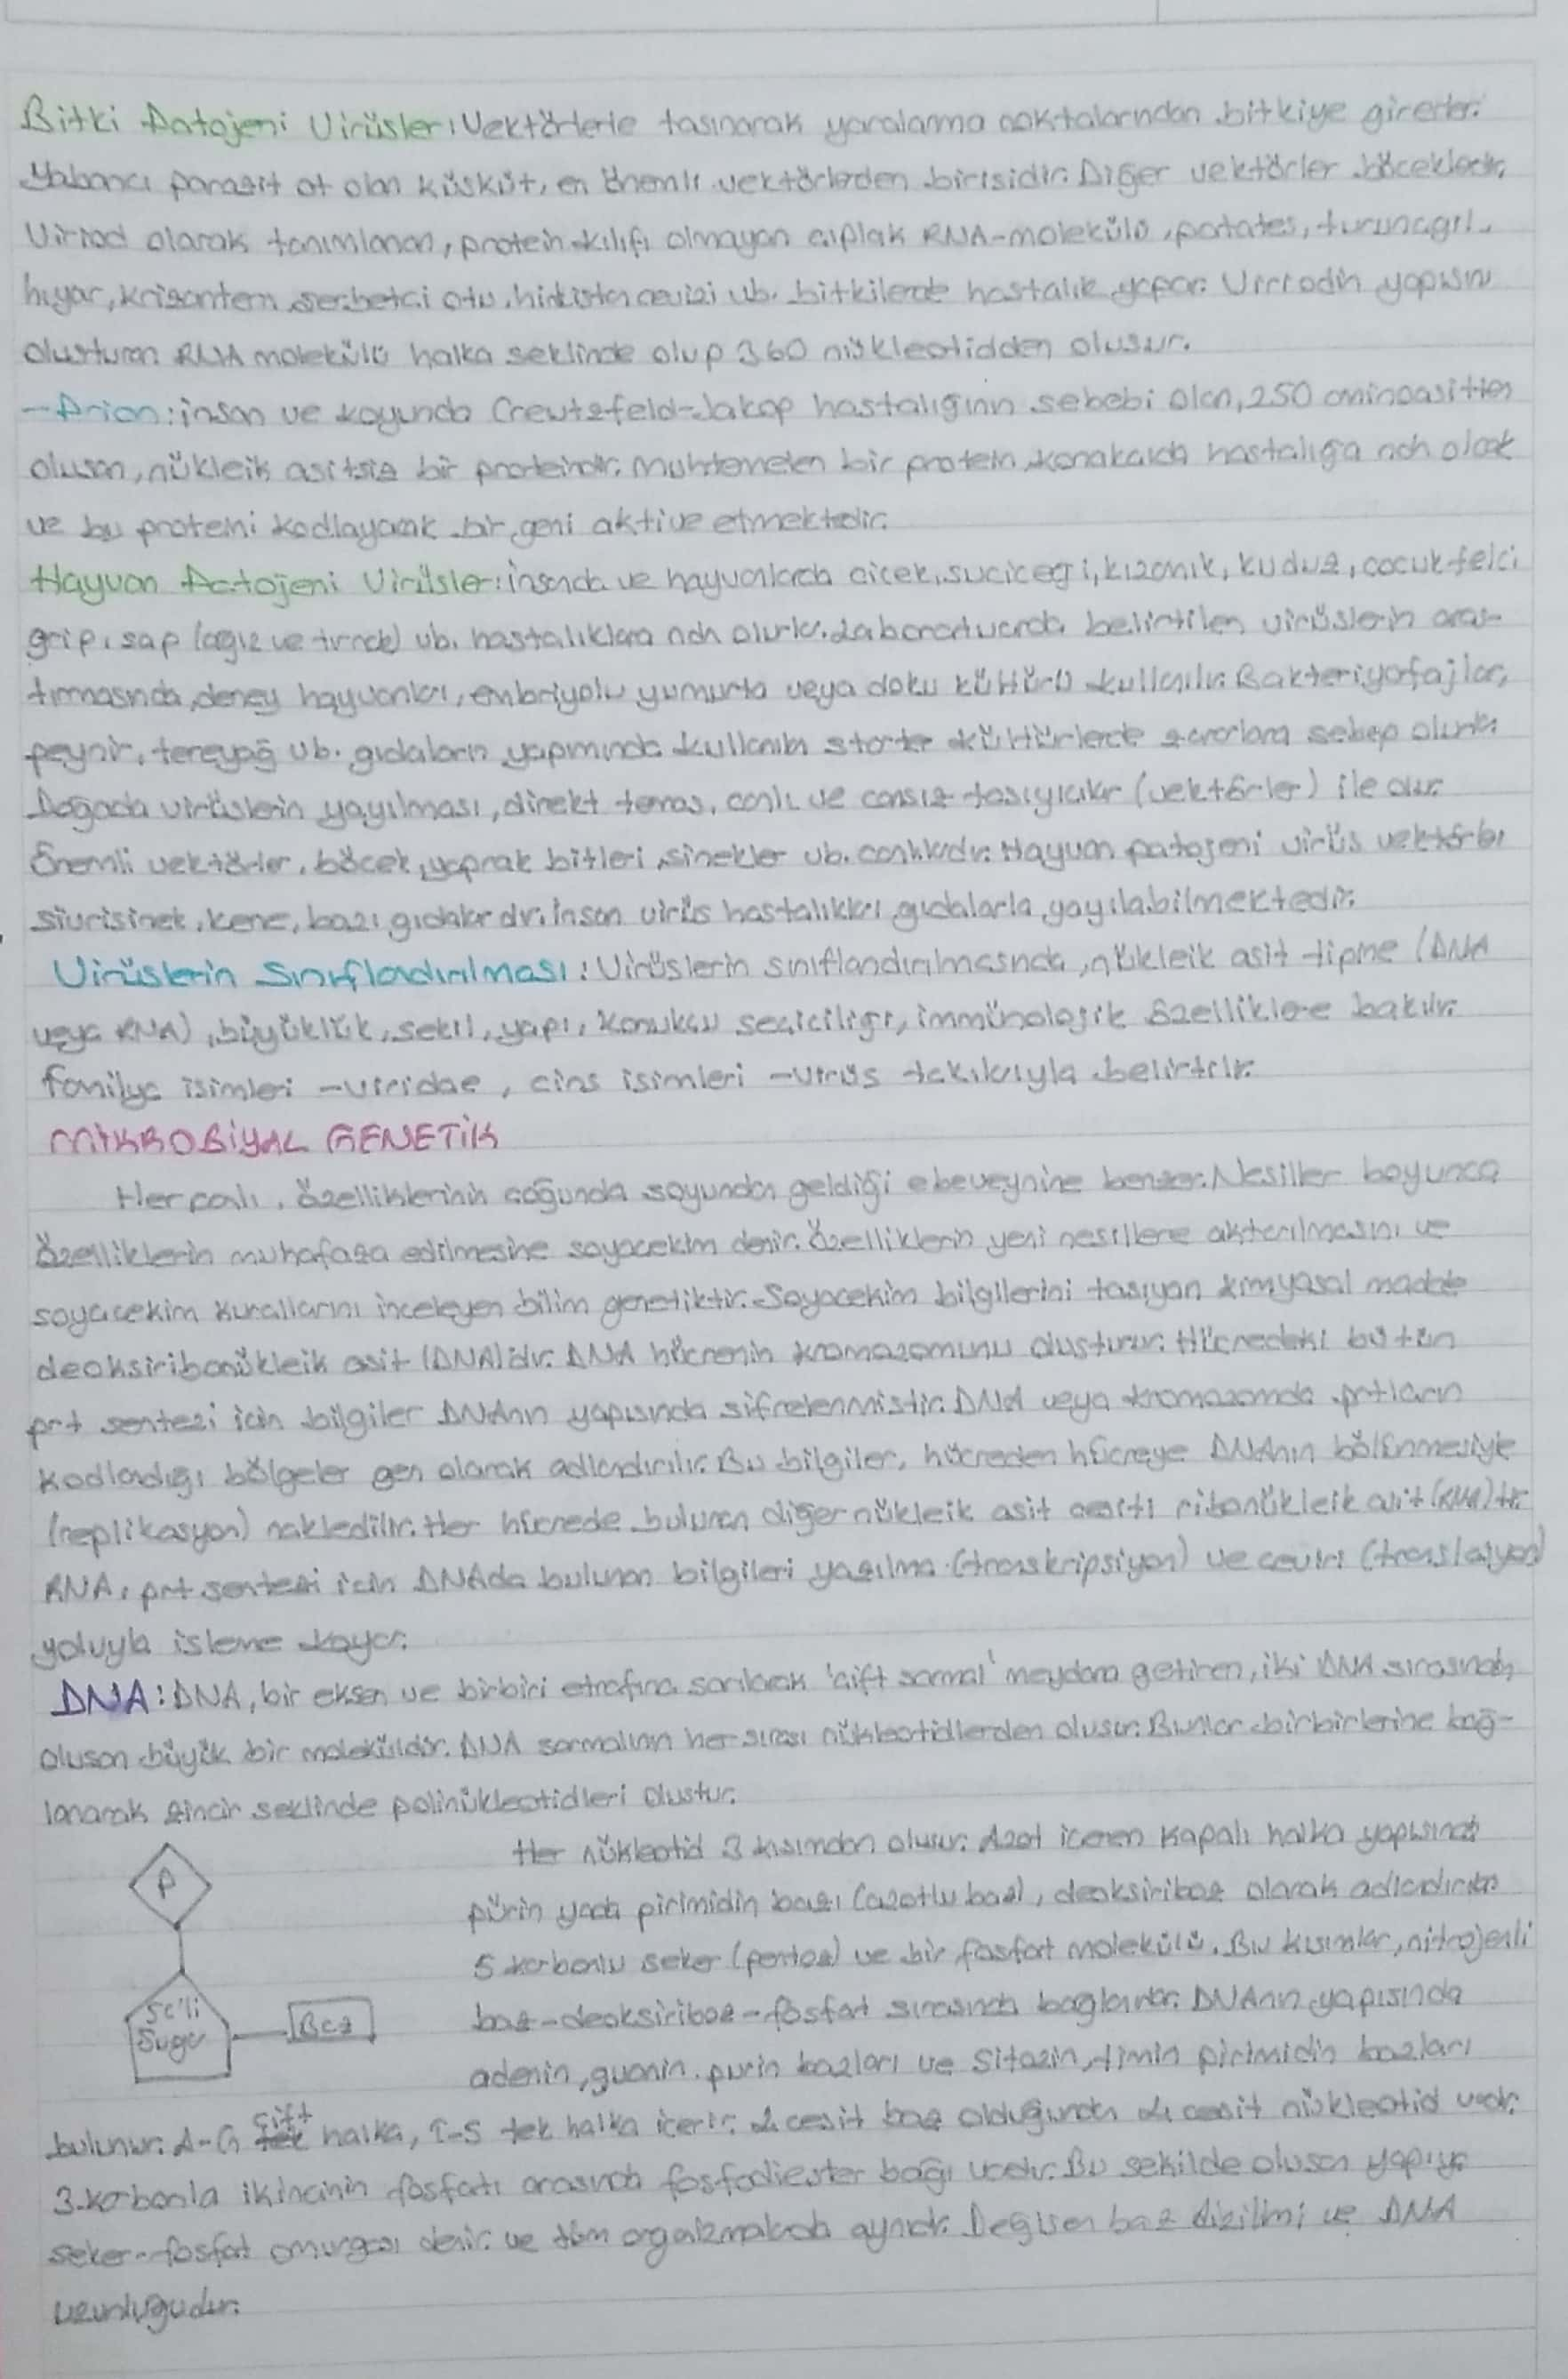 Bitki Patojeni Virüsler: Vektörlerle tasınarak yaralanma noktalarından bitkiye girerler.
Yabancı parazit ot olan küsküt, en önemli vektörlerden birisidir. Diğer vektörler böceklerdir.
Viroid olarak tanımlanan, protein kılıfı olmayan çıplak RNA-molekülü, patates, turunçgil,
hıyar, krizantem, serbetci otu, hindistan cevizi vb. bitkilerde hastalık yapar. Viroidin yapısını
olusturan RNA molekülü halka seklinde olup 360 nükleotidden olusur.
-Prion: insan ve koyunda Creutzfeld-Jakop hastalığının sebebi olan, 250 aminoasitten
olusan, nükleik asitsiz bir proteindir. Muhtemelen bir protein, konakcıda hastalığa ndn olacak
ve bu proteini kodlayacak bir geni aktive etmektedir.
Hayvan Patojeni Virüsler: insanda ve hayvanlarda cicek, sucicegi, kızamık, kuduz, cocuk felci
grip, sap (agız ve tırnak) vb. hastalıklara ndn olurlar. Laboratuarda belirtilen virüslerin aras-
tırmasında, deney hayvanları, embriyolu yumurta veya doku kültürü kullanılır. Bakteriyofajlar,
peynir, tereyağ vb. gıdaların yapımında kullanılan starter kültürlerde zararlara sebep olurlar.
Doğada virüslerin yayılması, direkt temas, canlı ve cansız tasıyıcılar (vektörler) ile olur.
Önemli vektörler, böcek, yaprak bitleri, sinekler vb. canlılardır. Hayvan patojeni virüs vektörleri
sivrisinek, kene, bazı gıdalar dır. İnsan virüs hastalıkları gıdalarla yayılabilmektedir.
Virüslerin Sınıflandırılması: Virüslerin sınıflandırılmasında, nükleik asit tipine (DNA
veya RNA), büyüklük, sekil, yapı, konukcu seciciliği, immünolojik özelliklere bakılır.
Familya isimleri -viridae, cins isimleri -virüs takılarıyla belirtilir.
MİKROBİYAL GENETİK
Her canlı, özelliklerinin coğunda soyundan geldiği ebeveynine benzer. Nesiller boyunca
özelliklerin muhafaza edilmesine soyacekim denir. Özelliklerin yeni nesillere aktarılmasını ve
soyacekim kurallarını inceleyen bilim genetiktir. Soyacekim bilgilerini tasıyan kimyasal madde
deoksiribonükleik asit (DNA)dır. DNA hücrenin kromozomunu olusturur. Hücredeki bütün
prt sentezi icin bilgiler DNAnın yapısında sifrelenmistir. DNA veya kromozomda prtların
kodlandığı bölgeler gen olarak adlandırılır. Bu bilgiler, hücreden hücreye DNAnın bölünmesiyle
(replikasyon) nakledilir. Her hücrede bulunan diğer nükleik asit cesiti ribonükleik asit (RNA)tir.
RNA, prt sentezi icin DNAda bulunan bilgileri yazılma (transkripsiyon) ve ceviri (translasyon)
yoluyla isleme koyar.
DNA: DNA, bir eksen ve birbiri etrafına sarılarak 'çift sarmal' meydana getiren, iki DNA sırasından
olusan büyük bir moleküldür. DNA sarmalının her sırası nükleotidlerden olusur. Bunlar birbirlerine bağ-
lanarak zincir seklinde polinükleotidleri olustur.
Her nükleotid 3 kısımdan olusur. Azot iceren kapalı halka yapısında
pürin yada pirimidin bazı (azotlu baz), deoksiriboz olarak adlandırılan
5 karbonlu seker (pentoz) ve bir fosfat molekülü. Bu kısımlar, nitrojenli
baz-deoksiriboz-fosfat sırasında baglanır. DNAnın yapısında
adenin, guanin, purin bazları ve Sitozin, timin pirimidin bazları
P
5c'li
Suga
Baz
bulunur. A-G tek çift halka, T-S tek halka icerir. 4 cesit baz olduğundan 4 cesit nükleotid vardır.
3. karbonla ikincinin fosfatı arasında fosfodiester bağı vardır. Bu sekilde olusan yapıya
seker-fosfat omurgası denir ve tüm organizmalarda aynıdır. Değisen baz dizilimi ve DNA
uzunlugudur.